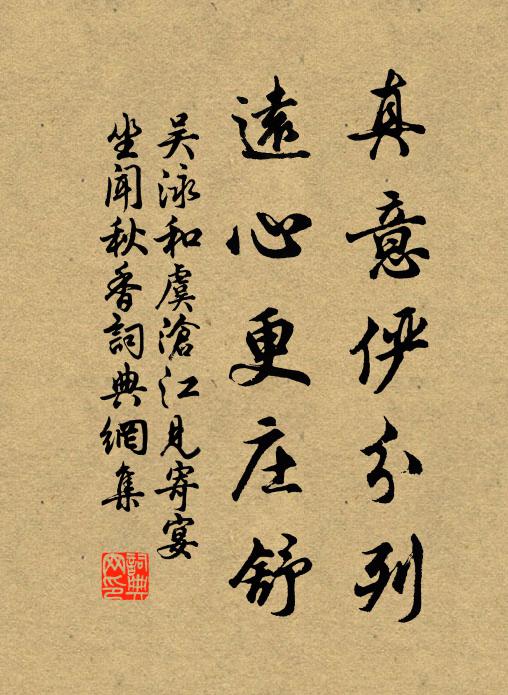 真意俨分列
遠心更庄舒
吴泳和虞滄江見寄宴
坐聞秋香詞典網集
詞典网印